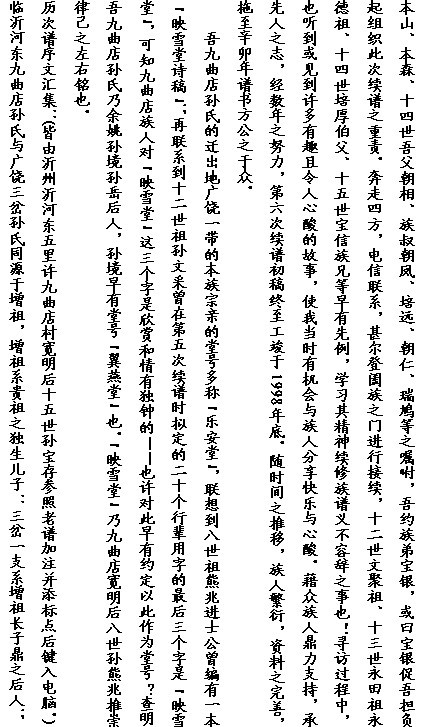 本山、本森、十四世吾父朝相、族叔朝凤、培远、朝仁、瑞鸠等之嘱咐，吾约族弟宝银，或曰宝银促吾担负
起组织此次续谱之重责。奔走四方，电信联系，甚尔登国族之门进行接续，十二世文聚祖、十三世永田祖永
德祖、十四世培厚伯父、十五世宝信族兄等早有先例，学习其精神续修族谱义不容辞之事也！寻访过程中，
也听到或见到许多有趣且令人心酸的故事，使我当时有机会与族人分享快乐与心酸。藉众族人鼎力支持，承
先人之志，经数年之努力，第六次续谱初稿终至工竣于1998年底。随时间之推移，族人繁衍，资料之完善，
拖至辛卯年谱书方公之于众。
吾九曲店孙氏的迁出地广饶一带的本族宗亲的堂号多称“乐安堂”，联想到八世祖熊兆进士公曾编有一本
“映雪堂诗稿”；再联系到十二世祖孙文采曾在第五次续谱时拟定的二十个行辈用字的最后三个字是“映雪
堂”，可知九曲店族人对“映雪堂”这三个字是欣赏和情有独钟的——也许对此早有约定以此作为堂号？查明
吾九曲店孙氏乃余姚孙境孙岳后人，孙境早有堂号“翼燕堂”也。“映雪堂”乃九曲店宽明后八世孙熊兆推崇
律己之左右铭也。
历次谱序文汇集：（皆由沂州沂河东五里许九曲店村宽明后十五世孙宝存参照老谱加注并添标点后键入电脑。）
临沂河东九曲店孙氏与广饶三岔孙氏同源于增祖，增祖系贵祖之独生儿子：三岔一支系增祖长子鼎之后人；